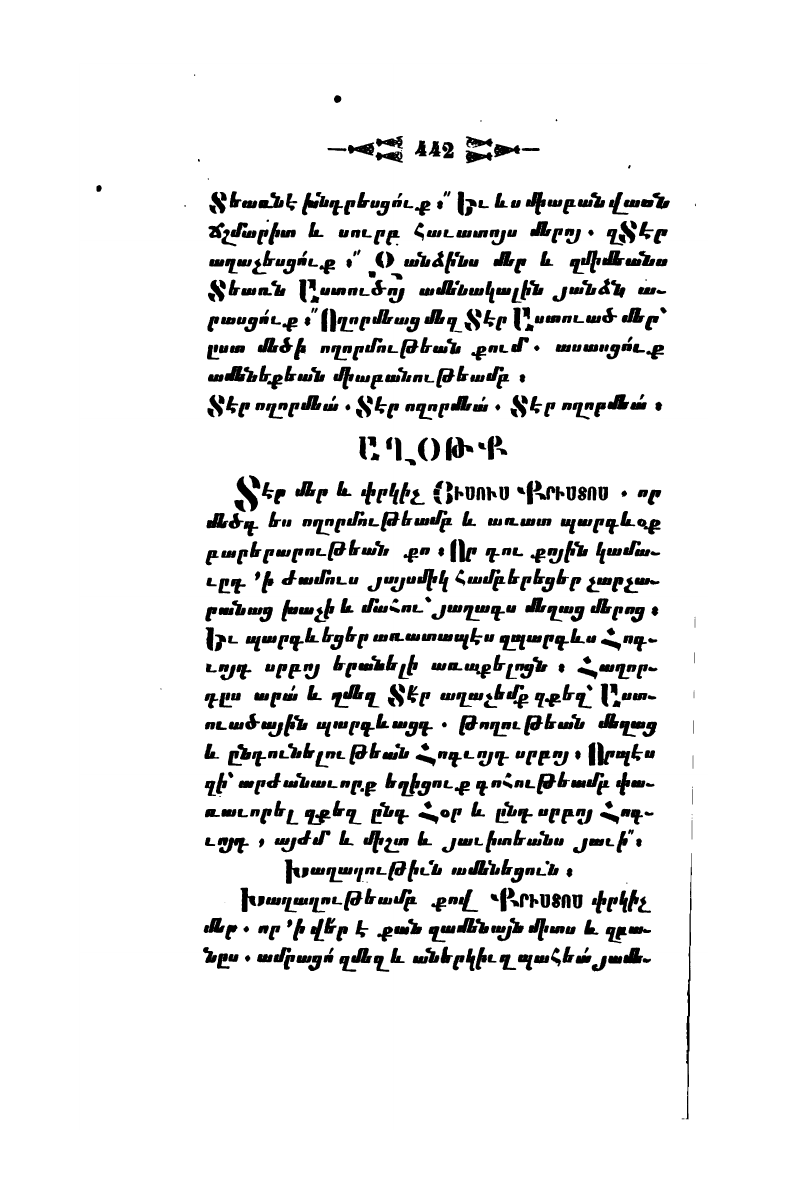 442
Տեառնէ խնդրեսցո՛ւք։ Եւ ևս միաբան վասն
ճշմարիտ և սուրբ հաւատոյս մերոյ. զՏէր
աղաչեսցո՛ւք։ Զանձինս մեր և զմիմեանս
Տեառն Աստուծոյ ամենակալին յանձն ա-
րասցո՛ւք։ Ողորմեաց մեզ Տէր Աստուած մեր՝
ըստ մեծի ողորմութեան քում. ասասցո՛ւք
ամենեքեան միաբանութեամբ։
Տէր ողորմեա՛. Տէր ողորմեա՛. Տէր ողորմեա՛։
ԱՂՕԹՔ
Տէր մեր և փրկիչ ՅԻՍՈՒՍ ՔՐԻՍՏՈՍ. որ
մեծդ ես ողորմութեամբ և առատ պարգևօք
բարերարութեան քո։ Որ դու քոյին կամա-
ւըդ ՚ի ժամուս յայսմիկ համբերեցեր չարչա-
րանաց խաչի և մահու՝ յաղագս մեղաց մերոց։
Եւ պարգևեցեր առատապէս զպարգևս Հոգ-
ւոյդ սրբոյ երանելի առաքելոցն։ Հաղոր-
դըս արա՛ և զմեզ Տէր աղաչեմք զքեզ՝ Աստ-
ուածային պարգևացդ. թողութեան մեղաց
և ընդունելութեան Հոգւոյդ սրբոյ։ Որպէս
զի՝ արժանաւորք եղիցուք գոհութեամբ փա-
ռաւորել զքեզ ընդ Հօր և ընդ սրբոյ Հոգ-
ւոյդ, այժմ և միշտ և յաւիտեանս յաւի՛՛։
Խաղաղութիւն ամենեցուն։
Խաղաղութեամբ քով ՔՐԻՍՏՈՍ փրկիչ
մեր. որ ՚ի վեր է քան զամենայն միտս և զբա-
նըս. ամրացո՛ զմեզ և աներկիւղ պահեա՛ յամե-